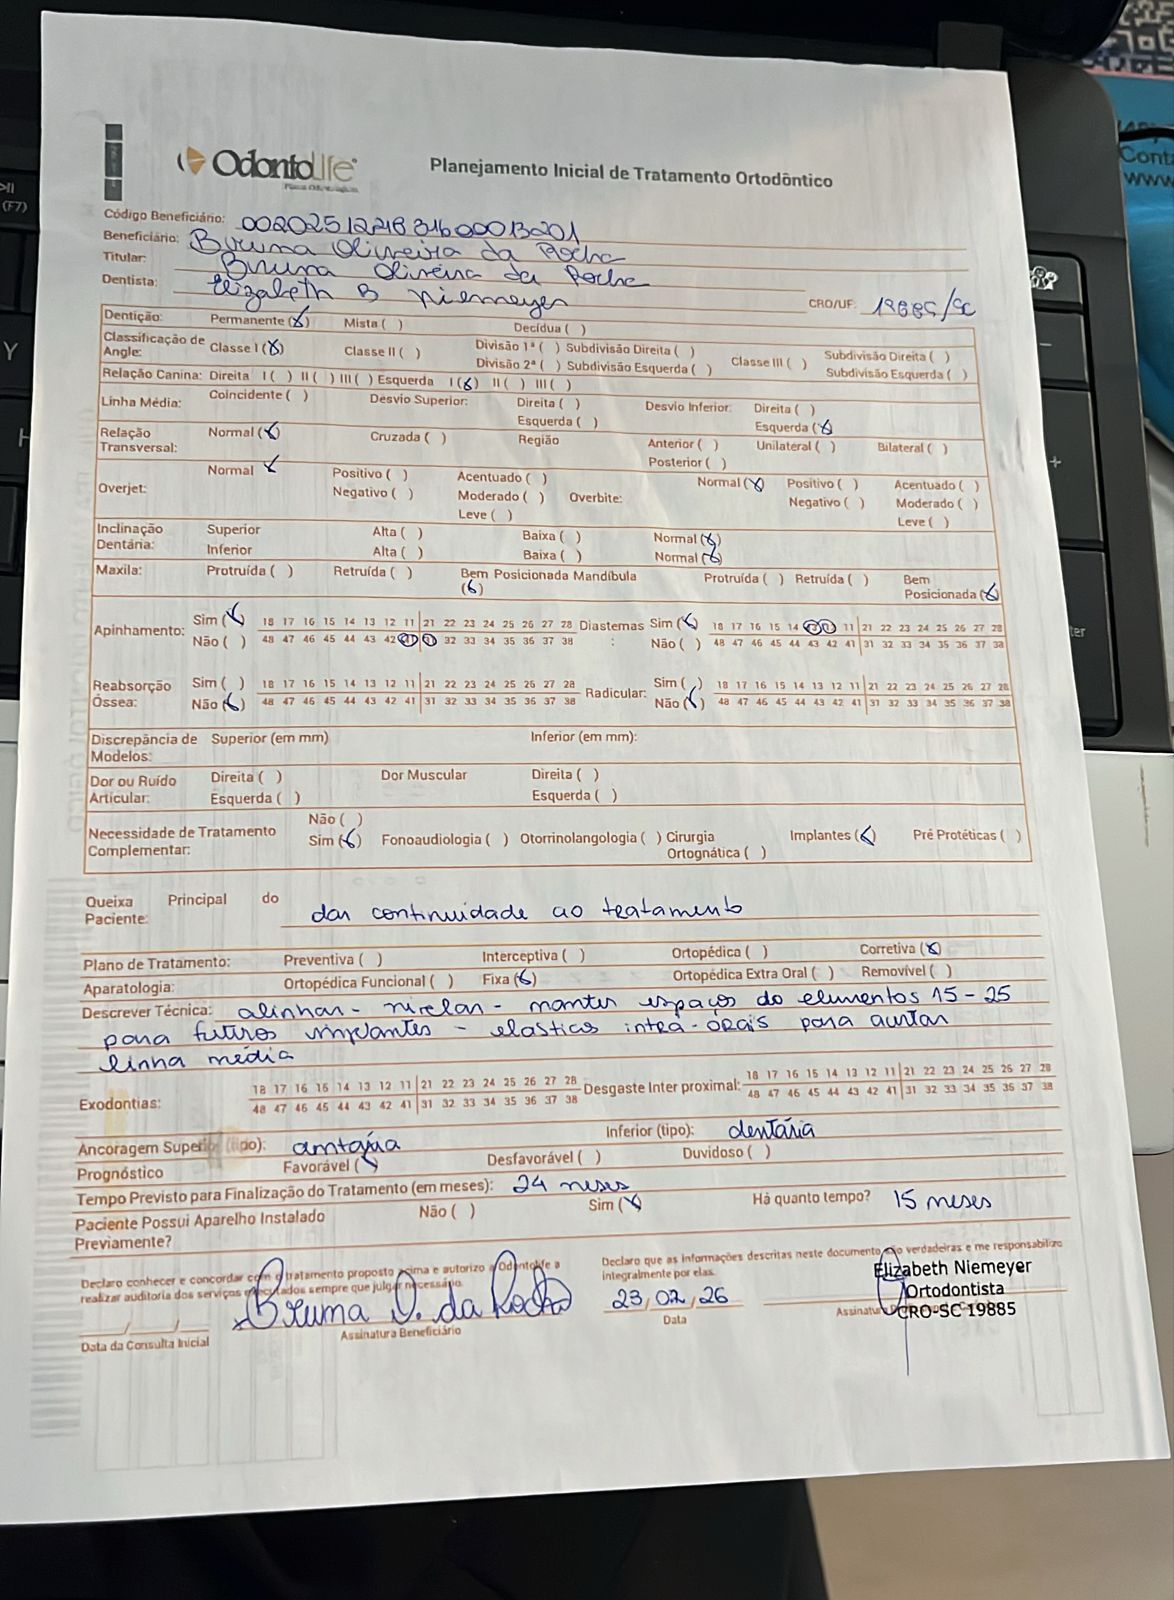 Odontolife
Planejamento Inicial de Tratamento Ortodôntico
Código Beneficiário:
Beneficiário: Bruna Oliveira da Rocha
Titular: Bruna Oliveira da Rocha
Dentista: Elizabeth B Niemeyer CRO/UF: 19885/SC
Dentição: Permanente (x) Mista ( ) Decídua ( )
Classificação de Angle: Classe I (x) Classe II ( ) Divisão 1ª ( ) Subdivisão Direita ( ) Classe III ( ) Subdivisão Direita ( )
Divisão 2ª ( ) Subdivisão Esquerda ( ) Subdivisão Esquerda ( )
Relação Canina: Direita I ( ) II ( ) III ( ) Esquerda I (x) II ( ) III ( )
Linha Média: Coincidente ( ) Desvio Superior: Direita ( ) Desvio Inferior: Direita ( )
Esquerda ( ) Esquerda (x)
Relação Transversal: Normal (x) Cruzada ( ) Região Anterior ( ) Unilateral ( ) Bilateral ( )
Posterior ( )
Overjet: Normal x Positivo ( ) Acentuado ( ) Overbite: Normal (x) Positivo ( ) Acentuado ( )
Negativo ( ) Moderado ( ) Negativo ( ) Moderado ( )
Leve ( ) Leve ( )
Inclinação Dentária: Superior Alta ( ) Baixa ( ) Normal (x)
Inferior Alta ( ) Baixa ( ) Normal (x)
Maxila: Protruída ( ) Retruída ( ) Bem Posicionada (x) Mandíbula Protruída ( ) Retruída ( ) Bem Posicionada (x)
Apinhamento: Sim (x) 18 17 16 15 14 13 12 11 21 22 23 24 25 26 27 28 Diastemas : Sim (x) 18 17 16 15 14 11 21 22 23 24 25 26 27 28
Não ( ) 48 47 46 45 44 43 42 32 33 34 35 36 37 38 Não ( ) 48 47 46 45 44 43 42 41 31 32 33 34 35 36 37 38
Reabsorção Óssea: Sim ( ) 18 17 16 15 14 13 12 11 21 22 23 24 25 26 27 28 Radicular: Sim ( ) 18 17 16 15 14 13 12 11 21 22 23 24 25 26 27 28
Não (x) 48 47 46 45 44 43 42 41 31 32 33 34 35 36 37 38 Não (x) 48 47 46 45 44 43 42 41 31 32 33 34 35 36 37 38
Discrepância de Modelos: Superior (em mm) Inferior (em mm):
Dor ou Ruído Articular: Direita ( ) Dor Muscular Direita ( )
Esquerda ( ) Esquerda ( )
Necessidade de Tratamento Complementar: Não ( )
Sim (x) Fonoaudiologia ( ) Otorrinolangologia ( ) Cirurgia Ortognática ( ) Implantes (x) Pré Protéticas ( )
Queixa Principal do Paciente: dar continuidade ao tratamento
Plano de Tratamento: Preventiva ( ) Interceptiva ( ) Ortopédica ( ) Corretiva (x)
Aparatologia: Ortopédica Funcional ( ) Fixa (x) Ortopédica Extra Oral ( ) Removível ( )
Descrever Técnica: alinhar - nivelar - manter espaços do elementos 15 - 25
para futuros implantes - elasticos intra-orais para
linha média
Exodontias: 18 17 16 15 14 13 12 11 21 22 23 24 25 26 27 28 Desgaste Inter proximal: 18 17 16 15 14 13 12 11 21 22 23 24 25 26 27 28
48 47 46 45 44 43 42 41 31 32 33 34 35 36 37 38 48 47 46 45 44 43 42 41 31 32 33 34 35 36 37 38
Ancoragem Superior (tipo): Inferior (tipo): dentária
Prognóstico Favorável (x) Desfavorável ( ) Duvidoso ( )
Tempo Previsto para Finalização do Tratamento (em meses): 24 meses
Paciente Possui Aparelho Instalado Previamente? Não ( ) Sim (x) Há quanto tempo? 15 meses
Declaro conhecer e concordar com o tratamento proposto acima e autorizo a Odontolife a
realizar auditoria dos serviços executados sempre que julgar necessário.
Declaro que as informações descritas neste documento são verdadeiras e me responsabilizo
integralmente por elas.
Bruna O. da Rocha
23/02/26
Elizabeth Niemeyer
Ortodontista
CRO-SC 19885
Data da Consulta Inicial
Assinatura Beneficiário
Data